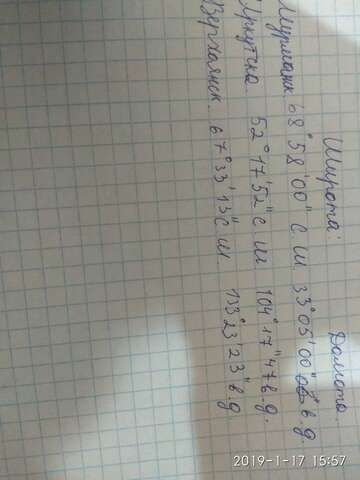 Широта: Долгота.
Мурманск 68°58'00" с.ш. 33°05'00" в.д.
Иркутска. 52°17'52" с.ш. 104°17"47 в.д.
Верхоянск. 67°33'13" с.ш. 133°23'23" в.д
2019-1-17 15:57